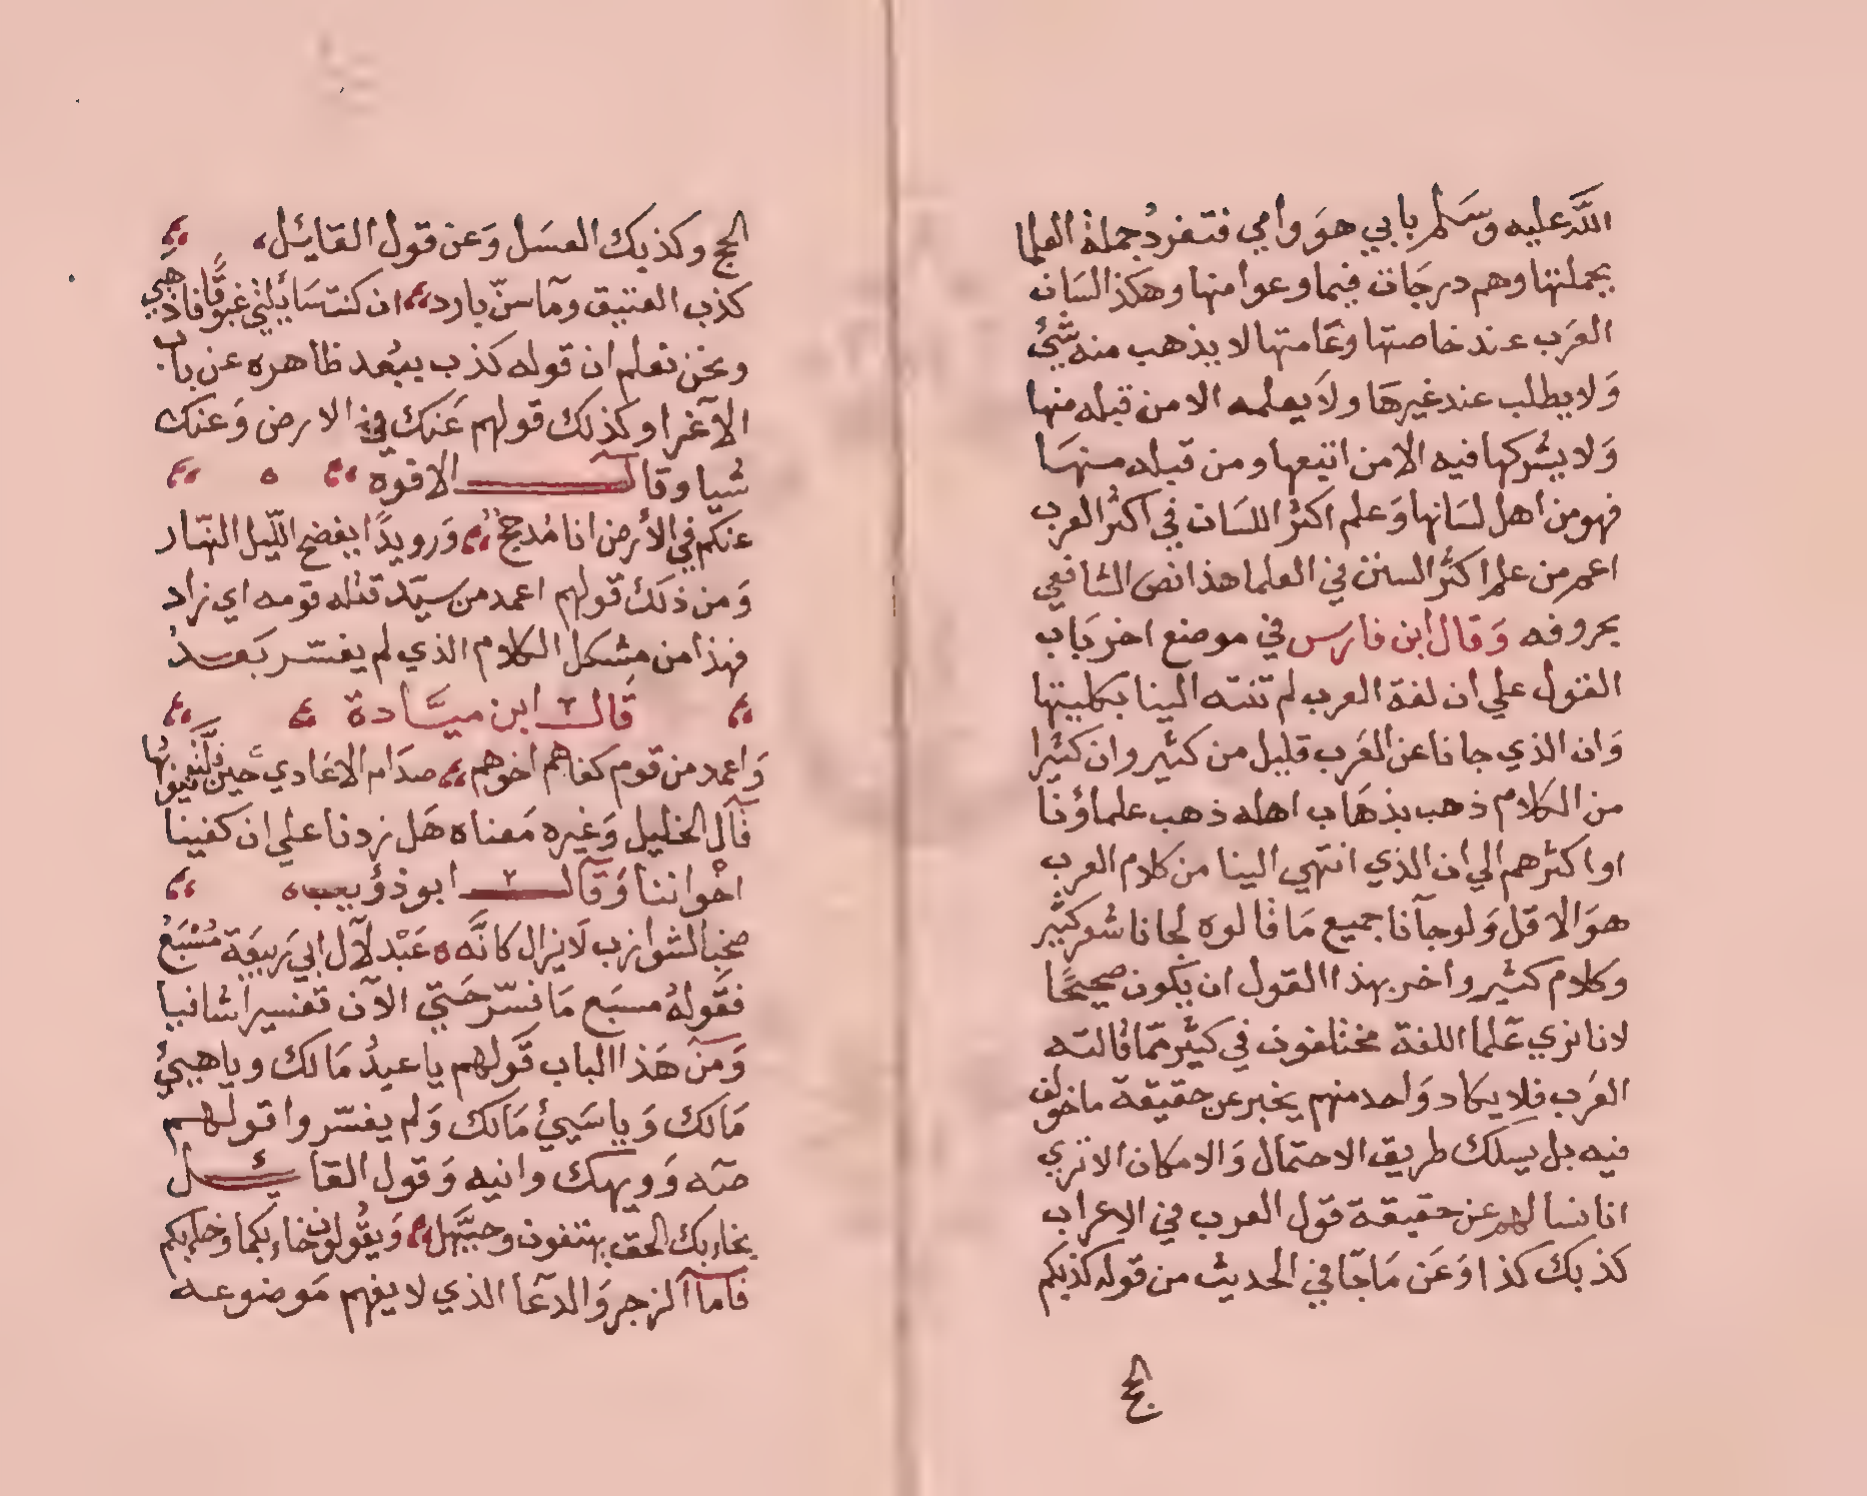 اللَّه عليه وسَلم بابي هوَ وامي فتفردُ جملة العلما
بجملتها وهم درجَات فيما وعوا منها وهكذ السَان
العرَب عند خاصتها وعَامتها لا يذهب منه شَيئ
وَلا يطلب عند غيرهَا ولاَ يعلمه الا من قبله منها
وَلا يشركها فيه الا من اتبعها ومن قبله منهَا
فهو من اهل لسَانها وَعلم اكثر اللسَان في اكثر العرب
اعم من علم اكثر السنن في العلما هذا نصَ الشافعي
بحروفه وَقال ابن فارس في موضع اخر بَاب
القول علي ان لغة العرب لم تنته الينا بكليتها
وَان الذي جانا عن العرَب قليل من كثير وان كثيرا
من الكلام ذهب بذهَاب اهله ذهب علماؤنا
او اكثرهم الي ان الذي انتهي الينا من كلام العرب
هوَ الاقل وَلو جآنا جميع مَا قالوه لجانا شعر كثير
وكلام كثير واخر بهذا القول ان يكون صحيحًا
لانا نري عَلما اللغة مختلفون في كثير ممّا قالته
العرَب فلا يكاد وَاحد منهم يخبر عن حقيقة ما خولف
فيه بل يسلك طريق الاحتمال وَالامكان الا تري
انا نسالهم عن حقيقة قول العرب في الاعراب
كذ بك كذا وَعَن مَا جَا في الحديث من قوله كذبكم
الحج
الحج وكذبك العسَل وَعن قول القائل
كذب العتيق ومآ سنّ بارد ان كنت سَائلتي غبوقًا فاذهبي
ونحن نعلم ان قوله كذب يبعُد ظاهره عن باب
الاغرا وكذلك قولهم عَنك في الارض وَعنك
شيا وقال الافوه
عنكم في الأرض انا مُدجج وَرويدًا يفضح اللّيل النهّار
وَمن ذلك قولهم اعمد من سيّد قتله قومه اي زاد
فهذا من مشكل الكلام الذي لم يفسّر بَعد
قَال ابن ميَّادة
وَاعمد من قوم كفاهم اخوهم صدَام الاعَادي حين فلت نيوبُها
قآل الخليل وَغيره مَعناه هَل زدنا علي ان كفينا
اخْواننا وَقال ابو ذؤيب
صخب الشوارب لَا يزال كانَّه عَبْد لآل ابي رَبيعَة مُسْبَعُ
فقَولهُ مسبَع مَا نسّر حَتي الآن تفسير اشافيا
وَمن هَذا الباب قَولهم يا عيدُ مَالك ويا هيئُ
مَالك وَيا شَيئ مَالك وَلم يفسّروا قولهم
صَه وَويهك وانيه وَقول القائل
بخاءبك الحق يهتفون وحيَّهل وَيقُولون خاءبكما وخاءبكم
فامآ الزجر وَالدعَا الذي لا يفهم مَوضوعه